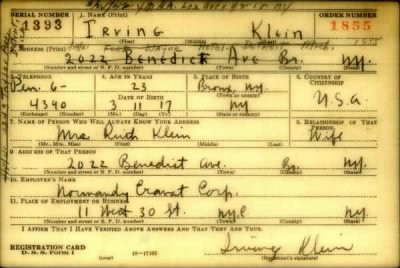 SERIAL NUMBER 1. NAME (Print) ORDER NUMBER
1393 Irving Klein 1855
(First) (Middle) (Last)
2. ADDRESS (Print)
2022 Benedict Ave Bx. NY.
(Number and street or R. F. D. number) (Town) (County) (State)
3. TELEPHONE 4. AGE IN YEARS 5. PLACE OF BIRTH 6. COUNTRY OF CITIZENSHIP
Pen. 6- 23 Bronx, NY
DATE OF BIRTH U.S.A.
4390 3 11 17 NY
(Exchange) (Number) (Mo.) (Day) (Yr.) (State or country)
7. NAME OF PERSON WHO WILL ALWAYS KNOW YOUR ADDRESS 8. RELATIONSHIP OF THAT PERSON
Mrs Ruth Klein Wife
(Mr., Mrs., Miss) (First) (Middle) (Last)
9. ADDRESS OF THAT PERSON
2022 Benedict Ave. Bx. NY.
(Number and street or R. F. D. number) (Town) (County) (State)
10. EMPLOYER'S NAME
Normandy Cravat Corp.
11. PLACE OF EMPLOYMENT OR BUSINESS
West 30 St. NYC NY.
(Number and street or R. F. D. number) (Town) (County) (State)
I AFFIRM THAT I HAVE VERIFIED ABOVE ANSWERS AND THAT THEY ARE TRUE.
REGISTRATION CARD
D. S. S. Form 1 16-17105 Irving Klein